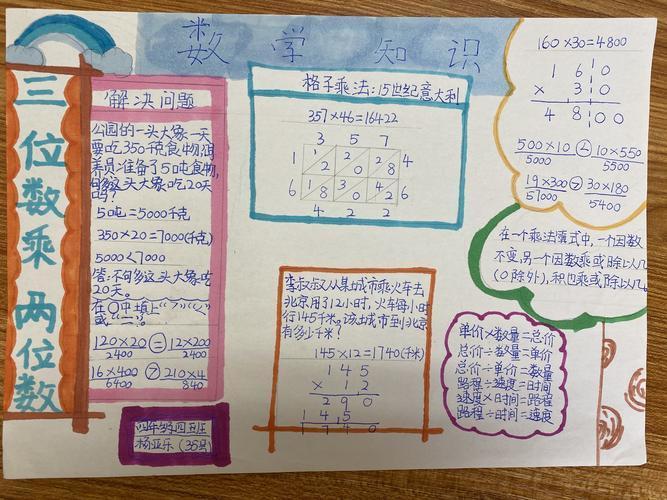 数学知识
三位数乘两位数
解决问题
公园的一头大象一天
要吃350千克食物,饲
养员准备了5吨食物,
够这头大象吃20天
吗?
5吨=5000千克
350×20=7000(千克)
5000<7000
答:不够这头大象吃
20天。
在〇中填上“>”“<”
或“=”。
120×20=12×200
2400 2400
16×400>210×4
6400 840
四年级四班
杨亚乐(35号)
格子乘法:15世纪意大利
357×46=16422
3 5 7
1 1 2 2 0 2 8 4
6 1 8 3 0 4 2 6
4 2 2
李叔叔从某城市乘火车去
北京用了12小时,火车每小时
行145千米。该城市到北京
有多少千米?
145×12=1740(千米)
1 4 5
× 1 2
2 9 0
1 4 5
1 7 4 0
160×30=4800
1 6 0
× 3 0
4 8 0 0
500×10<10×550
5000 5500
19×300>30×180
57000 5400
在一个乘法算式中,一个因数
不变,另一个因数乘或除以几
(0除外),积也乘或除以几。
单价×数量=总价
总价÷数量=单价
总价÷单价=数量
路程÷速度=时间
速度×时间=路程
路程÷时间=速度